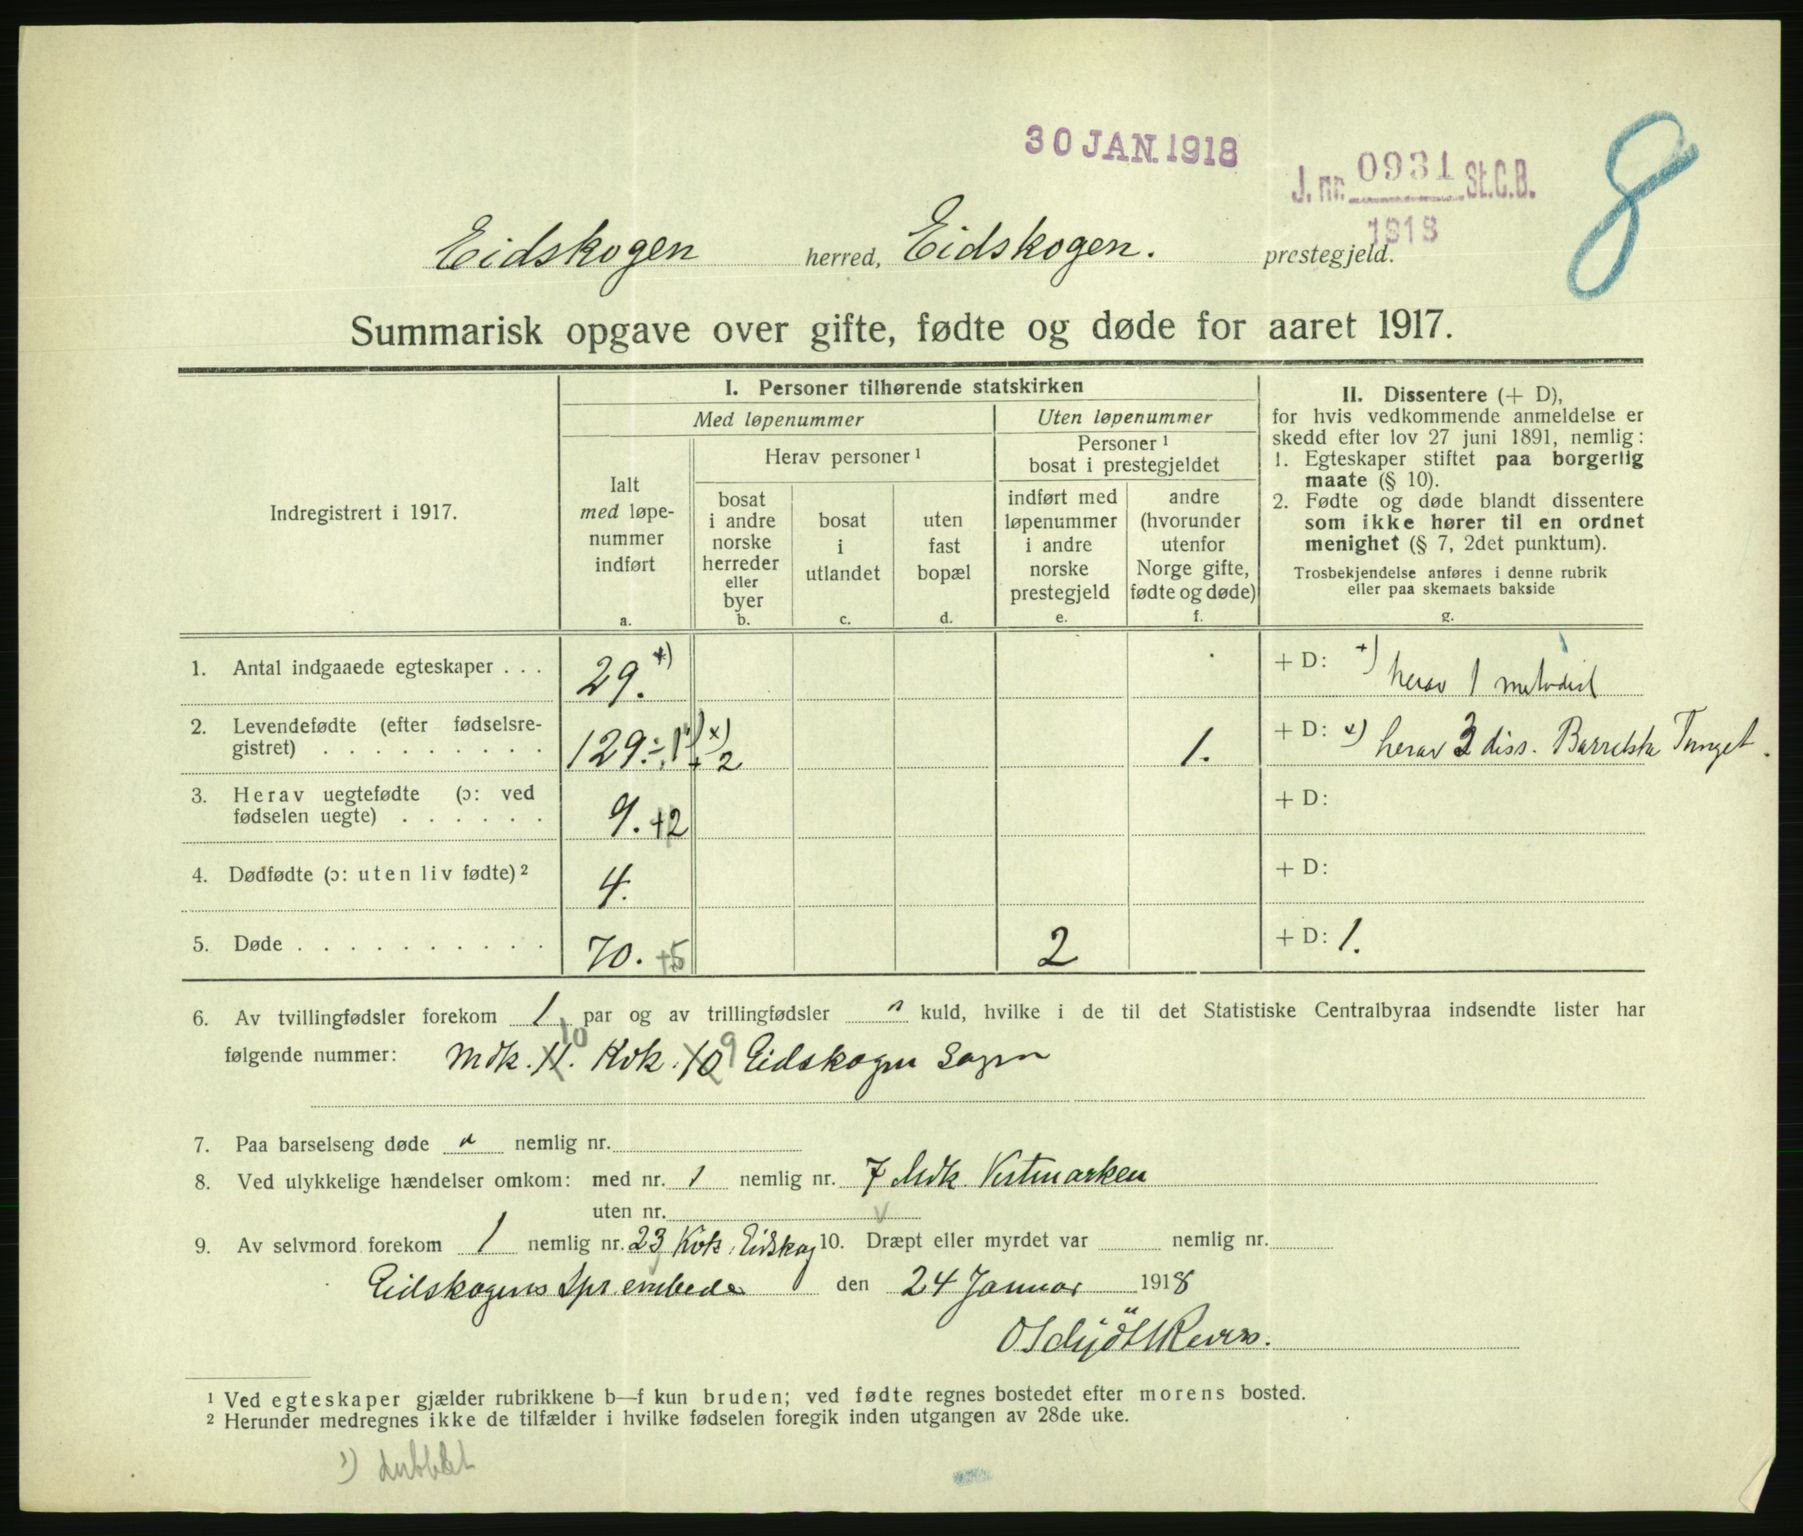 30 JAN. 1918
J. nr. 0931 St.C.B.
1918
8
Eidskogen herred, Eidskogen. prestegjeld.
Summarisk opgave over gifte, fødte og døde for aaret 1917.
Indregistrert i 1917.
I. Personer tilhørende statskirken
Med løpenummer
Uten løpenummer
Ialt
med løpe-
nummer
indført
a.
Herav personer ¹
bosat
i andre
norske
herreder
eller
byer
b.
bosat
i
utlandet
c.
uten
fast
bopæl
d.
Personer ¹
bosat i prestegjeldet
indført med
løpenummer
i andre
norske
prestegjeld
e.
andre
(hvorunder
utenfor
Norge gifte,
fødte og døde)
f.
II. Dissentere (+ D),
for hvis vedkommende anmeldelse er
skedd efter lov 27 juni 1891, nemlig:
1. Egteskaper stiftet paa borgerlig
maate (§ 10).
2. Fødte og døde blandt dissentere
som ikke hører til en ordnet
menighet (§ 7, 2det punktum).
Trosbekjendelse anføres i denne rubrik
eller paa skemaets bakside
g.
1. Antal indgaaede egteskaper . . . 29. +) + D: +) herav 1 metodist
2. Levendefødte (efter fødselsre-
gistret) . . . . . . . . . 129 ÷ 1 ¹) x) + 2 1. + D: x) herav 3 diss.
3. Herav uegtefødte (ɔ: ved
fødselen uegte) . . . . . . 9. +2 + D:
4. Dødfødte (ɔ: uten liv fødte) ² 4. + D:
5. Døde . . . . . . . . . . 70. +5 2 + D: 1.
6. Av tvillingfødsler forekom 1 par og av trillingfødsler kuld, hvilke i de til det Statistiske Centralbyraa indsendte lister har
følgende nummer: Mdk. 11. 10 Kvk. 10 9 Eidskogen Sogn
7. Paa barselseng døde nemlig nr.
8. Ved ulykkelige hændelser omkom: med nr. 1 nemlig nr. 7 Mdk Vestmarken
uten nr.
9. Av selvmord forekom 1 nemlig nr. 23 Kvk. Eidskog 10. Dræpt eller myrdet var nemlig nr.
Eidskogens Spr.embede den 24 Januar 1918
¹ Ved egteskaper gjælder rubrikkene b—f kun bruden; ved fødte regnes bostedet efter morens bosted.
² Herunder medregnes ikke de tilfælder i hvilke fødselen foregik inden utgangen av 28de uke.
¹) dubblet